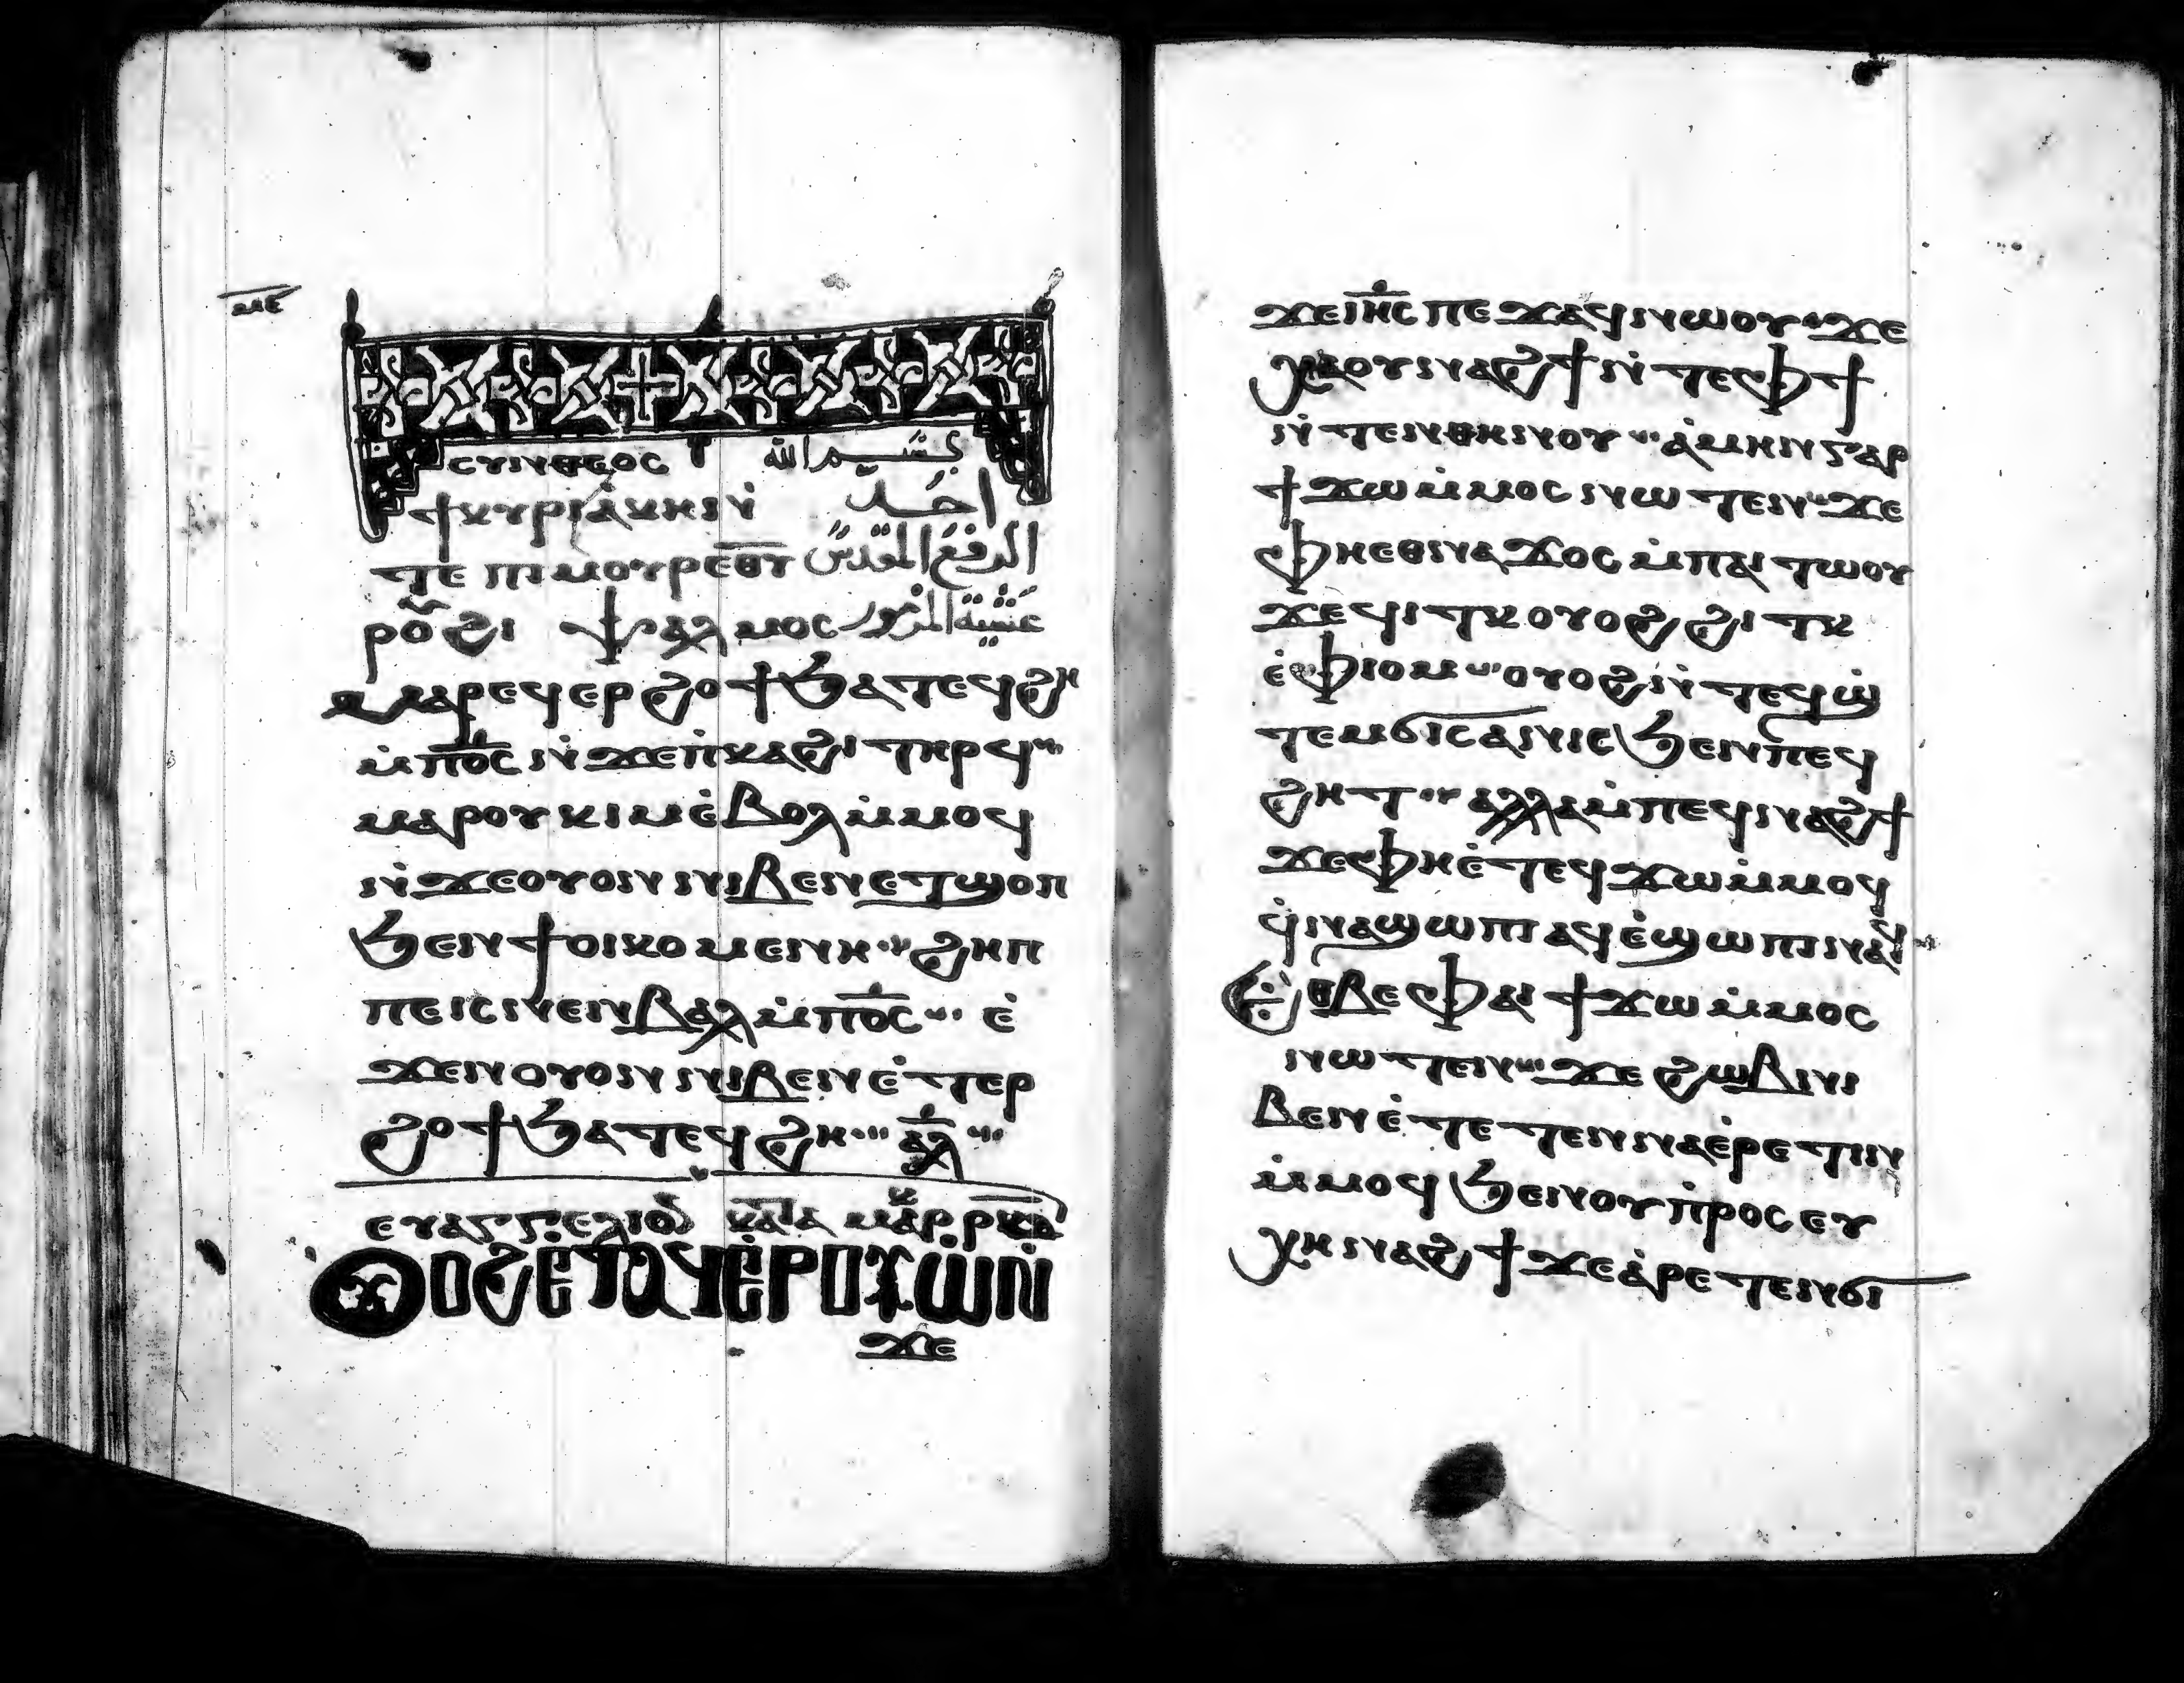 ⲙⲉ
ⲥⲩⲛⲑⲉⲟⲥ بسم الله
ϯⲕⲩⲣⲓⲁⲕⲏ ⲛ̇ احد
ⲧⲉ ⲡⲓⲙⲟⲩⲣ ⲉⲑⲩ الرفع المقدس
ⲣⲟ̅ϩⲓ ⲯⲁⲗⲙⲟⲥ عشية المزمور
ⲙⲁⲣⲉϥⲉⲣϩⲟϯ ϧⲁⲧⲉϥϩⲏ
ⲙ̇ⲡⲟ̅ⲥ ⲛ̇ϫⲉⲡ̇ⲕⲁϩⲓ ⲧⲏⲣϥ
ⲙⲁⲣⲟⲩⲕⲓⲙ ⲉ̇ⲃⲟⲗ ⲙ̇ⲙⲟϥ
ⲛ̇ϫⲉⲟⲩⲟⲛ ⲛⲓⲃⲉⲛ ⲉⲧϣⲟⲡ
ϧⲉⲛ ϯⲟⲓⲕⲟⲙⲉⲛⲏ ϩⲏⲡ
ⲡⲉⲓⲥ ⲛⲉⲛⲃⲁⲗ ⲙ̇ⲡⲟ̅ⲥ ⲉ̇
ϫⲉⲛ ⲟⲩⲟⲛ ⲛⲓⲃⲉⲛ ⲉ̇ⲧⲉⲣ
ϩⲟϯ ϧⲁⲧⲉϥϩⲏ ⲁ̅ⲗ̅
ⲉⲩⲁⲅⲅⲉⲗⲓⲟⲛ ⲕⲁⲧⲁ ⲙⲁⲣ ⲣⲕⲁ
ⲟⲩⲟϩ ⲉ̇ⲧⲁϥⲉ̇ⲣⲟⲩⲱ̇ ⲛ̇
ϫⲉ
ϫⲉⲓⲏ̅ⲥ ⲡⲉϫⲁϥ ⲛⲱⲟⲩ ϫⲉ
ⲭⲁ ⲟⲩⲛⲁϩϯ ⲛ̇ⲧⲉⲫϯ
ⲛ̇ⲧⲉⲛⲑⲏⲛⲟⲩ ⲁ̇ⲙⲏⲛ ⲅⲁⲣ
ϯϫⲱ ⲙ̇ⲙⲟⲥ ⲛⲱⲧⲉⲛ ϫⲉ
ⲫⲏⲉⲑⲛⲁϫⲟⲥ ⲙ̇ⲡⲁⲓⲧⲱⲟⲩ
ϫⲉ ϥⲓⲧⲕ ⲟⲩⲟϩ ϩⲓⲧⲕ
ⲉ̇ⲫⲓⲟⲙ ⲟⲩⲟϩ ⲛ̇ⲧⲉϥϣ
ⲧⲉⲙϭⲓⲥⲁⲛⲓⲥ ϧⲉⲛ ⲡⲉϥ
ϩⲏⲧ ⲁⲗⲗⲁ ⲙ̇ⲡⲉϥⲛⲁϩϯ
ϫⲉ ⲫⲏⲉ̇ⲧⲉϥϫⲱ ⲙ̇ⲙⲟϥ
ϥ̇ⲛⲁϣⲱⲡⲓ ⲁϥⲉ̇ϣⲱⲡⲓ ⲛⲁϥ
ⲉⲑⲃⲉ ⲫⲁⲓ ϯϫⲱ ⲙ̇ⲙⲟⲥ
ⲛⲱⲧⲉⲛ ϫⲉ ϩⲱⲃ ⲛⲓ
ⲃⲉⲛ ⲉ̇ⲧⲉⲧⲉⲛⲛⲁⲉ̇ⲣⲉⲧⲓⲛ
ⲙ̇ⲙⲟϥ ϧⲉⲛ ⲟⲩⲡ̇ⲣⲟⲥⲉⲩ
ⲭⲏ ⲛⲁϩϯ ϫⲉ ⲁ̇ⲣⲉⲧⲉⲛϭⲓ